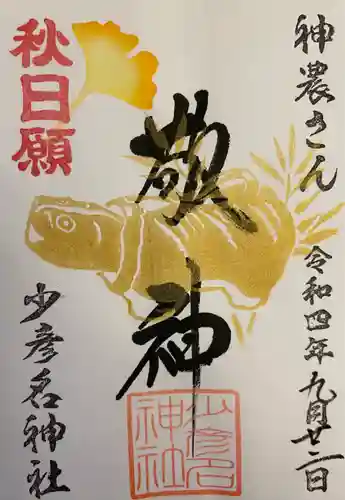 神農さん
令和四年九月廿二日
敬神
秋日願
少彦名神社
少彦名神社